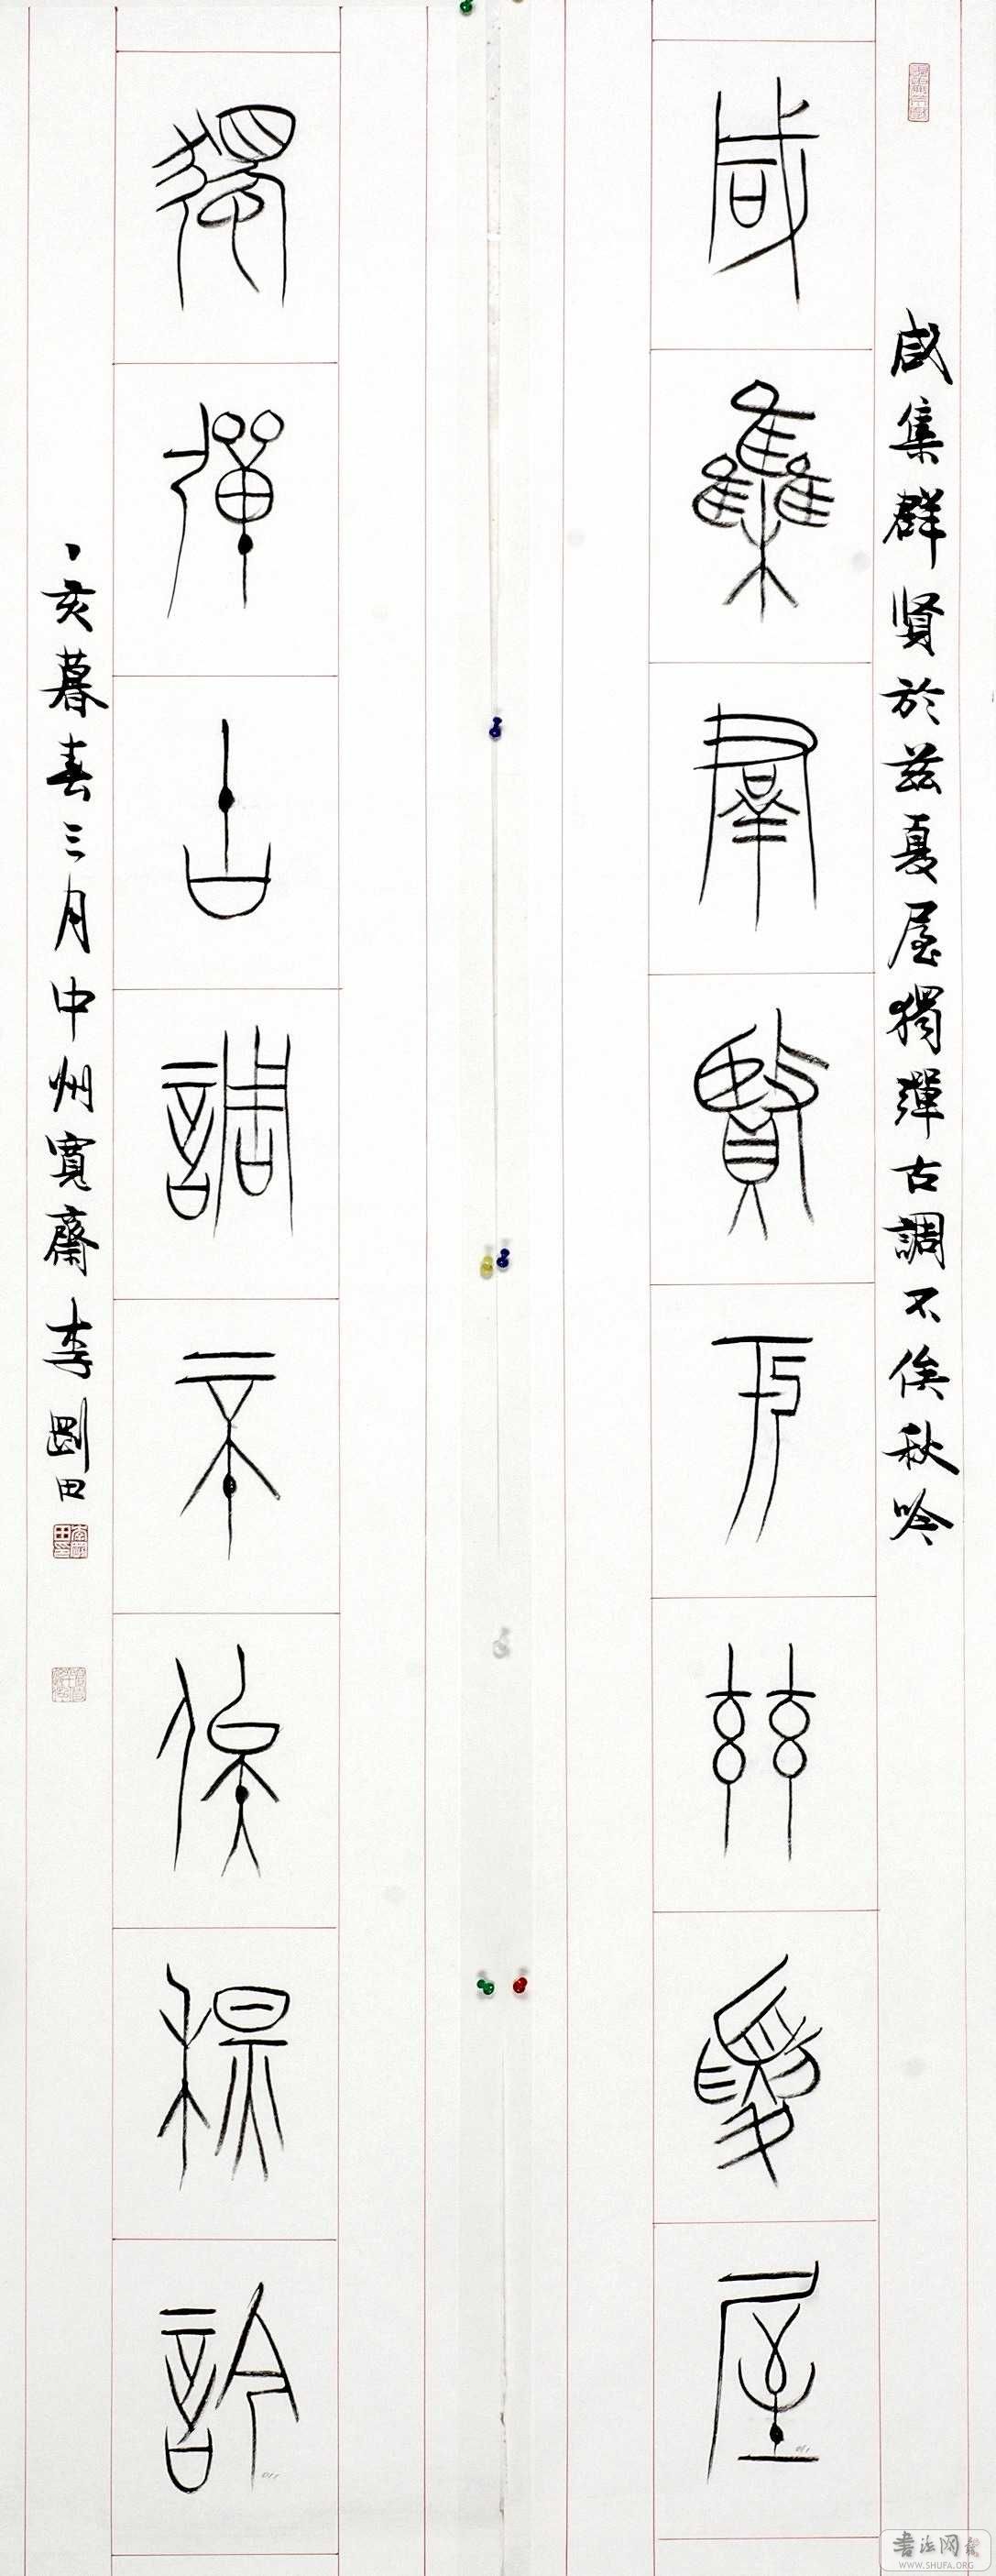 咸集群贤於兹夏屋獨彈古調不俟秋吟
咸集羣賢于兹夏屋
獨彈古調不俟秋訡
丁亥暮春三月中州寬齋李剛田
書法网
WWW.SHUFA.ORG